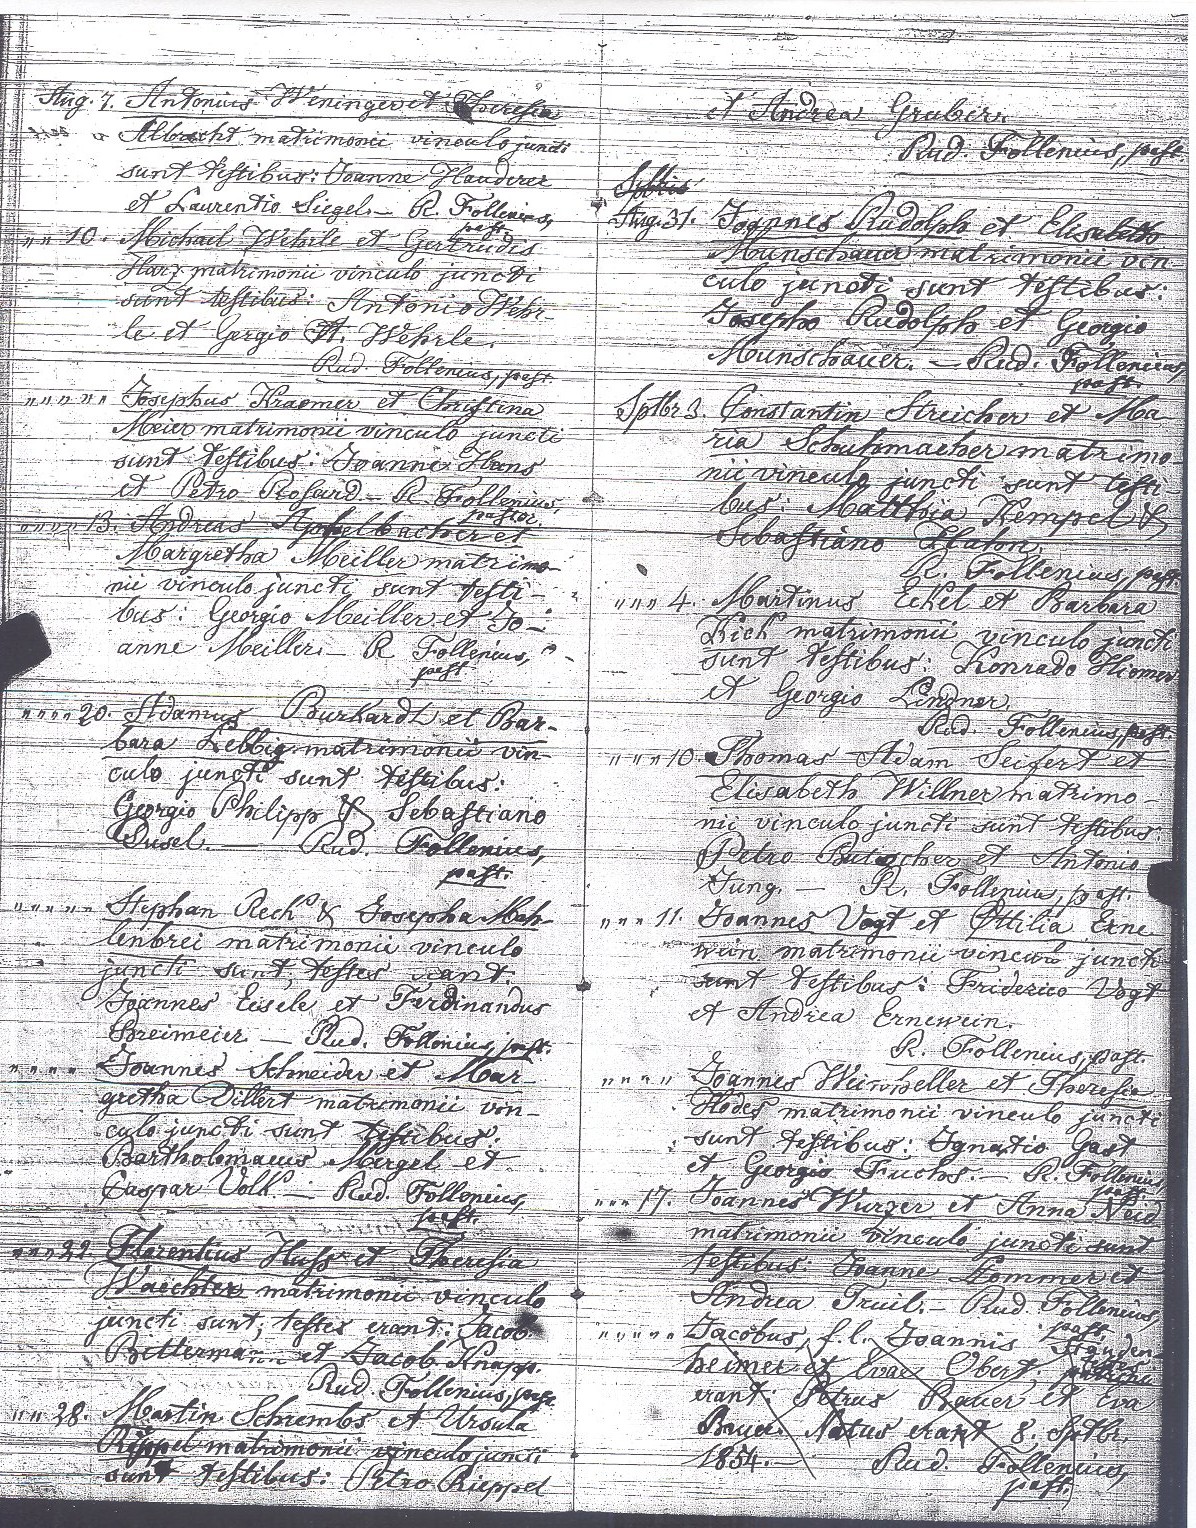 Aug. 7. Antonius Weninger et Theresia
Albrecht matrimonii vinculo juncti
sunt testibus: Joanne Hauderer
et Laurentio Siegel. — R. Follenius,
past.
" " 10. Michael Wehrle et Gertrudis
Harz matrimonii vinculo juncti
sunt testibus: Antonio Wehr-
le et Gergio A. Wehrle.
Rud. Follenius, past.
" " " " " Josephus Kraemer et Christina
Meier matrimonii vinculo juncti
sunt testibus: Joanne Hans
et Petro Rosard. — R. Follenius,
pastor.
" " " 13. Andreas Apfelbacher et
Margretha Meiller matrimo-
nii vinculo juncti sunt testi-
bus: Georgio Meiller et Jo-
anne Meiller. — R Follenius,
past.
" " " " 20. Adamus Burkardt et Bar-
bara Lebbig matrimonii vin-
culo juncti sunt testibus:
Georgio Philipp & Sebastiano
Dusel. — Rud. Follenius,
past.
" " " " " Stephan Rech & Josepha Meh-
lenbrei matrimonii vinculo
juncti sunt, testes erant:
Joannes Eisele et Ferdinandus
Breimeier — Rud. Follenius, past.
" " " " Joannes Schneider et Mar-
gretha Dillert matrimonii vin-
culo juncti sunt testibus:
Bartholomaeus Mergel et
Caspar Volk. — Rud. Follenius,
past.
" " " 22. Florentius Huss et Theresia
Waechter matrimonii vinculo
juncti sunt; testes erant: Jacob
Bitterman et Jacob Knapp.
Rud. Follenius, past
" " 28. Martin Schrembs et Ursula
Rippel matrimonii vinculo juncti
sunt testibus: Petro Rieppel
et Andrea Gruber.
Rud. Follenius, past.
Sptbris
Aug. 31. Joannes Rudolph et Elisabetha
Munschauer matrimonii vin-
culo juncti sunt testibus:
Josepho Rudolph et Georgio
Munschauer. — Rud. Follenius,
past.
Sptbr 3. Constantin Streicher et Ma
ria Schuhmacher matrimo-
nii vinculo juncti sunt testi-
bus: Matthia Kempel &
Sebastiano
R. Follenius, past.
" " " 4. Martinus Eckel et Barbara
Kich matrimonii vinculo juncti
sunt testibus: Konrado
et Georgio Lindner.
Rud. Follenius, past.
" " " 10. Thomas Adam Seifert et
Elisabeth Willner matrimo-
nii vinculo juncti sunt testibus:
Petro et Antonio
Jung. — R. Follenius, past.
" " " 11. Joannes Vogt et Ottilia Erne
wein matrimonii vinculo juncti
sunt testibus: Friderico Vogt
et Andrea Ernewein.
R. Follenius, past.
" " " " Joannes et Theresia
Hodes matrimonii vinculo juncti
sunt testibus: Ignatio Gast
et Georgio Fuchs. — R. Follenius,
past.
" " " 17. Joannes Wurzer et Anna Neid
matrimonii vinculo juncti sunt
testibus: Joanne Lommer et
Andrea Truil. — Rud. Follenius,
past.
" " " " " Jacobus, f. l. Joannis Stauden-
heimer et Evae Obert; testes
erant: Petrus Bauer et Eva
Bauer. Natus erant 8. Sptbr.
1854. — Rud. Follenius,
past.